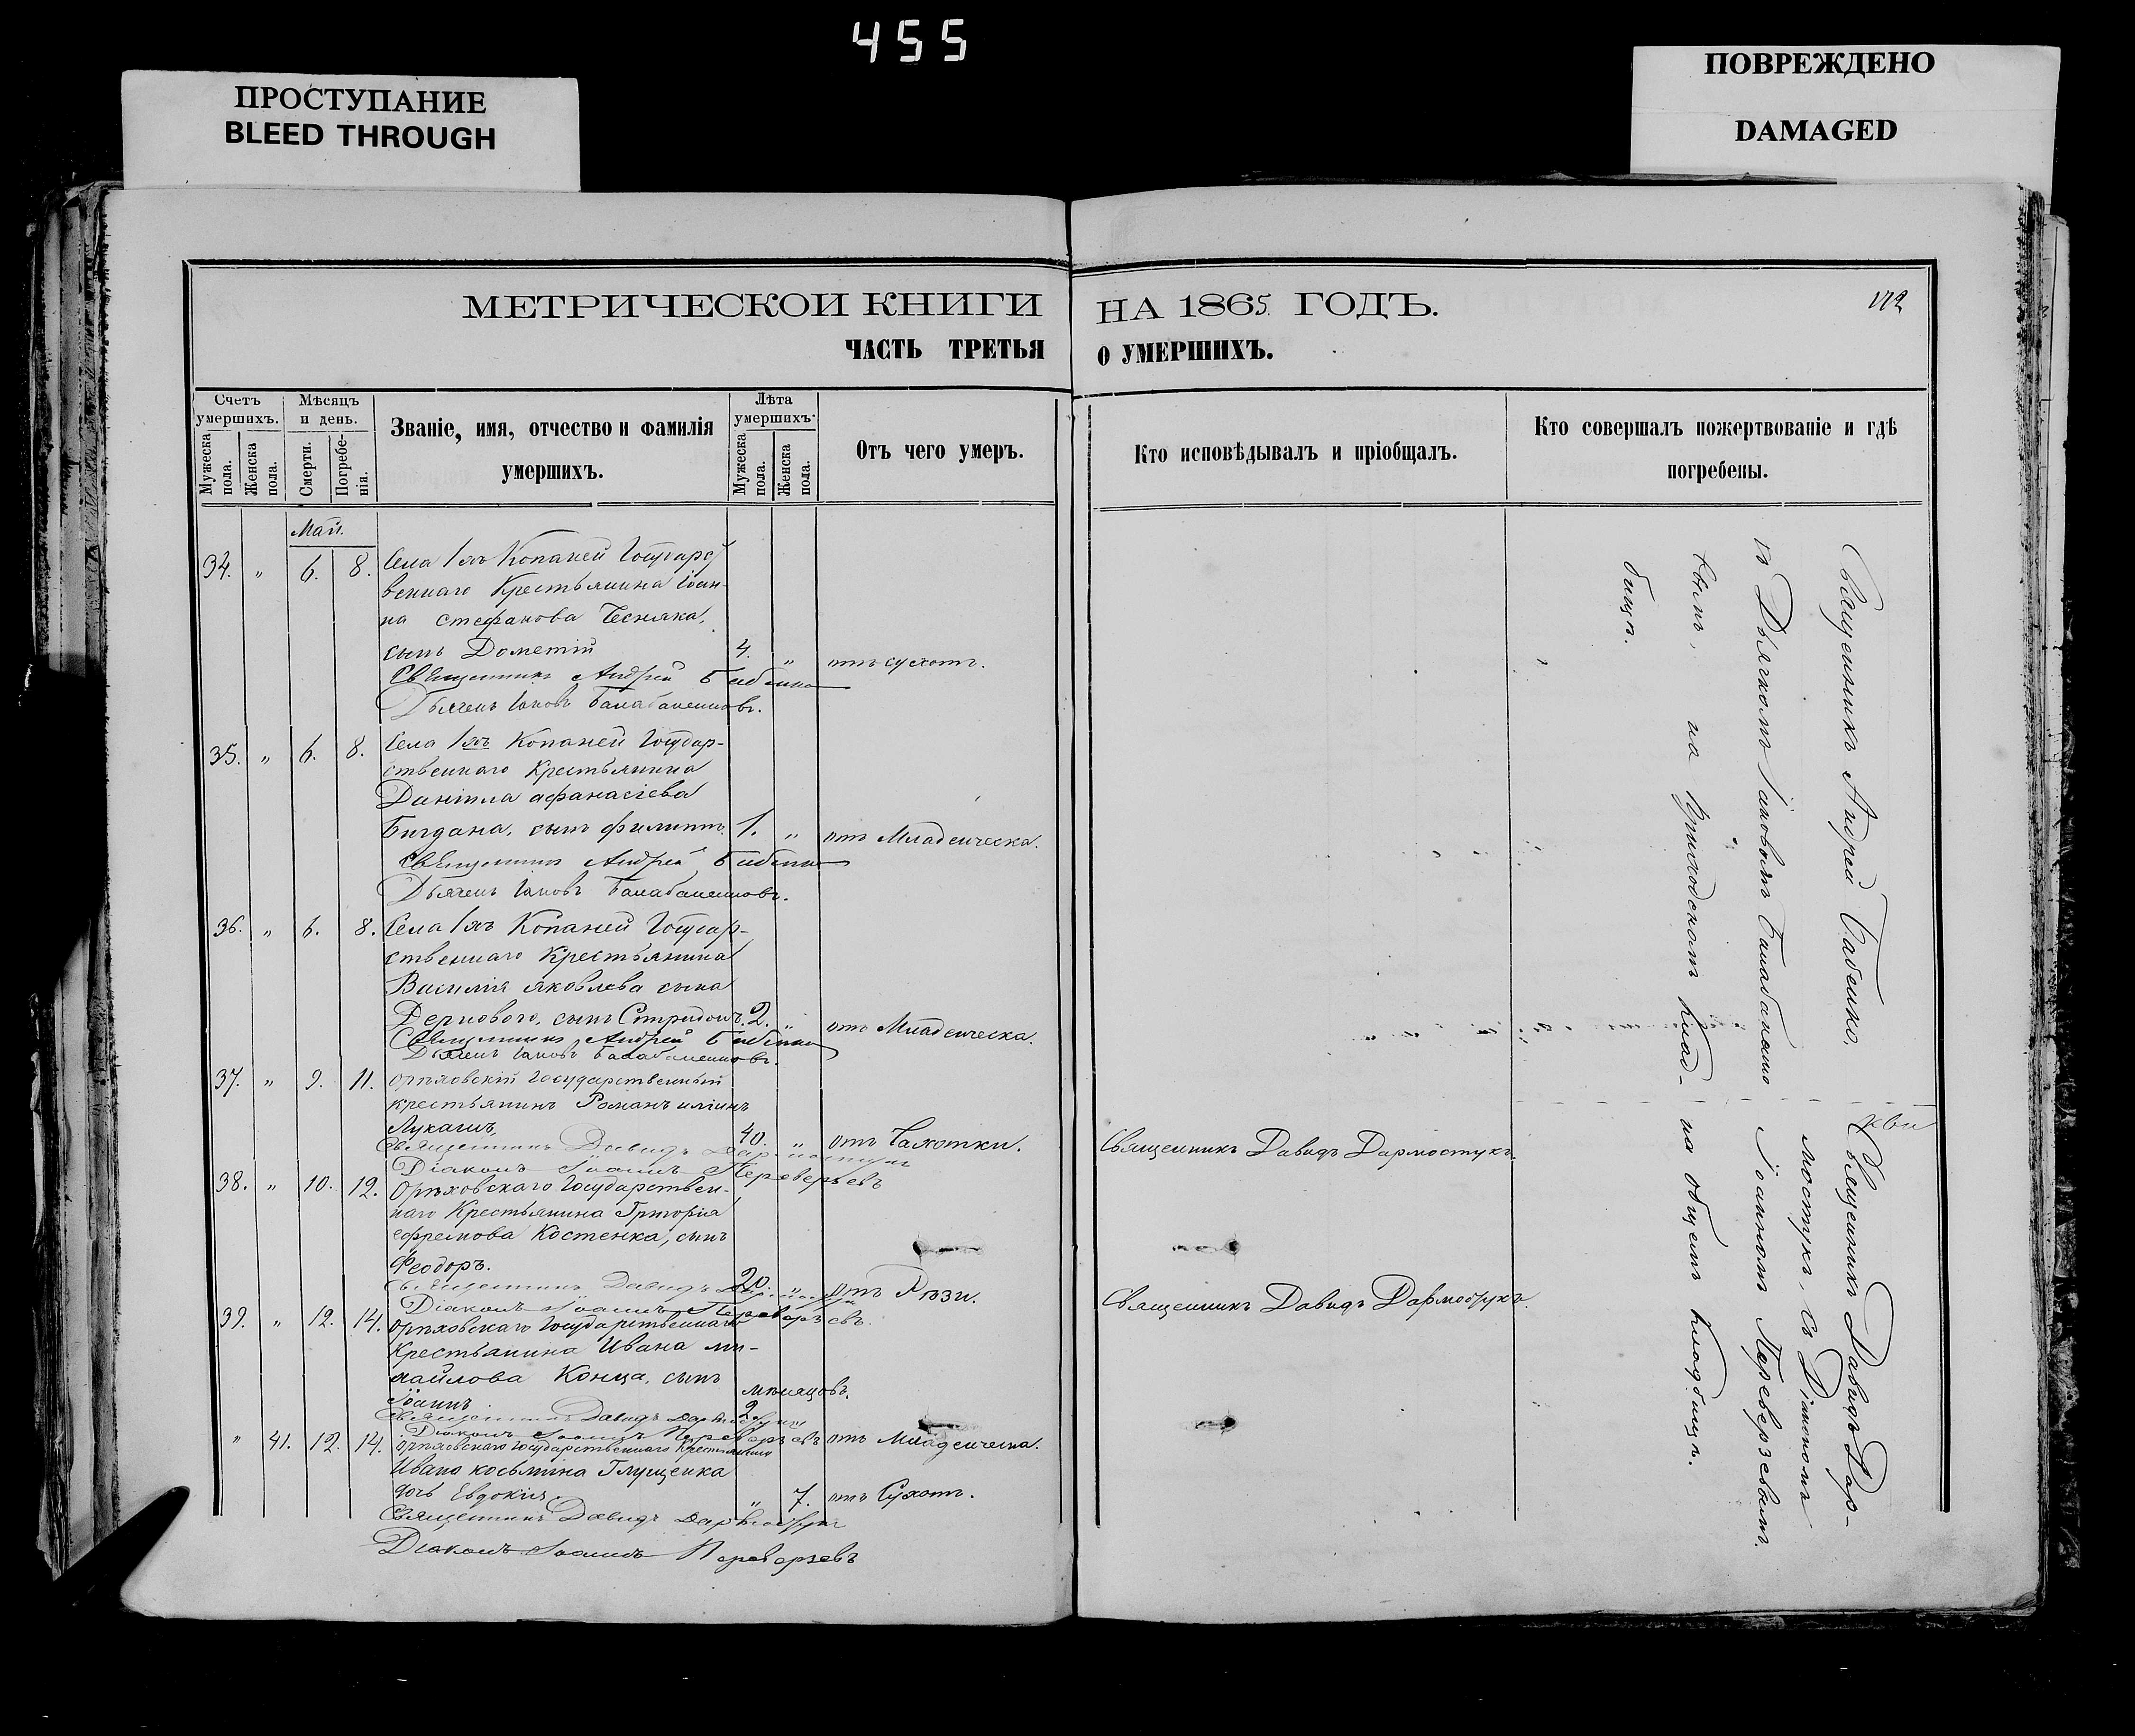 455
ПРОСТУПАНИЕ
BLEED THROUGH
ПОВРЕЖДЕНО
DAMAGED
МЕТРИЧЕСКОЙ КНИГИ НА 1865 ГОДЪ.
ЧАСТЬ ТРЕТЬЯ О УМЕРШИХЪ.
Счетъ умершихъ.
Мужеска пола.
Женска пола.
Мѣсяцъ и день.
Смерти.
Погребенія.
Званіе, имя, отчество и фамилія
умершихъ.
Лѣта умершихъ
Мужеска пола.
Женска пола.
Отъ чего умеръ.
Кто исповѣдывалъ и пріобщалъ.
Кто совершалъ пожертвованіе и гдѣ
погребены.
Май.
34. " 6. 8. Села Копаней
веннаго Крестьянина Іоан-
на Стефанова Чесняка,
сынъ Дометій 4. " отъ сухотъ.
Священникъ Андрей Бабенко
Дьячекъ Іаковъ Балабаненковъ.
35. " 6. 8. Села Копаней Государ-
ственнаго Крестьянина
Даніила Афанасіева
сынъ Филиппъ. 1. " отъ Младенческа.
Священникъ Андрей Бабенко
Дьячекъ Іаковъ Балабаненковъ.
36. " 6. 8. Села Копаней Государ-
ственнаго Крестьянина
Василія Яковлева сына
Дернового, сынъ Спиридонъ. 2. " отъ Младенческа.
Священникъ Андрей Бабенко
Дьячекъ Іаковъ Балабаненковъ.
37. " 9. 11. Орѣховскій Государственный
крестьянинъ Романъ Иліинъ
40. " отъ Чахотки. Священникъ Давидъ Дармостукъ.
Священникъ Давидъ Дармостукъ
Діаконъ Іоаннъ Переверзевъ
38. " 10. 12. Орѣховскаго Государствен-
наго Крестьянина Григорія
Ефремова Костенка, сынъ
Феодоръ. 20. " отъ Рѣзи. Священникъ Давидъ Дармостукъ.
Священникъ Давидъ Дармостукъ
Діаконъ Іоаннъ Переверзевъ.
39. " 12. 14. Орѣховскаго Государственнаго
Крестьянина Ивана Ми-
хайлова Конца, сынъ мѣсяцовъ.
Іоаннъ 2 отъ Младенческа.
Священникъ Давидъ Дармостукъ
Діаконъ Іоаннъ Переверзевъ
" 41. 12. 14. Орѣховскаго Государственнаго Крестьянина
Ивана Косьмина Глущенка
дочь Евдокія. " 7. отъ Сухотъ.
Священникъ Давидъ Дармостукъ
Діаконъ Іоаннъ Переверзевъ
Священникъ Андрей Бабенко,
съ Дьячкомъ Іаковомъ Балабаненко
вымъ, на Приходскомъ Клад-
бищѣ.
Священникъ Давидъ Дар-
мостукъ, съ Діакономъ
Іоанномъ Переверзевымъ.
на общемъ Кладбищѣ.